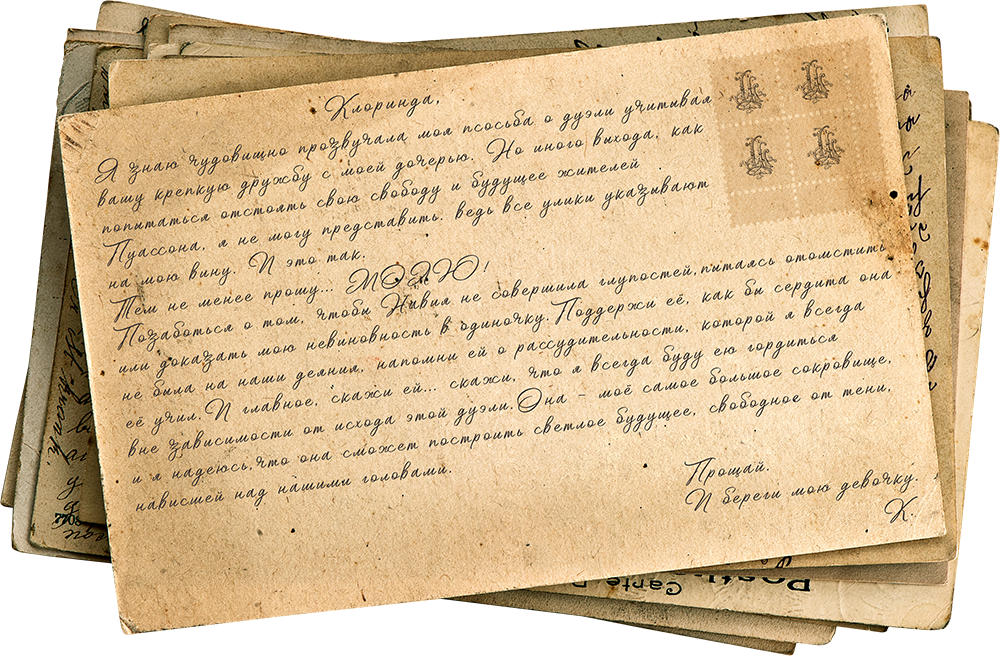 Клоринда,
Я знаю чудовищно прозвучала моя псосьба о дуэли учитывая
вашу крепкую дружбу с моей дочерью. Но иного выхода, как
попытаться отстоять свою свободу и будущее жителей
Пуассона, я не могу представить. ведь все улики указывают
на мою вину. И это так.
Тем не менее прошу... МОЛЮ!
Позаботься о том, чтобы Навия не совершила глупостей,пытаясь отомстить
или доказать мою невиновность в одиночку. Поддержи её, как бы сердита она
не была на наши деяния, напомни ей о рассудительности, которой я всегда
её учил. И главное, скажи ей... скажи, что я всегда буду ею гордиться
вне зависимости от исхода этой дуэли. Она - моё самое большое сокровище,
и я надеюсь,что она сможет построить светлое будущее, свободное от тени,
нависшей над нашими головами.
Прощай.
И береги мою девочку.
К.
Carte